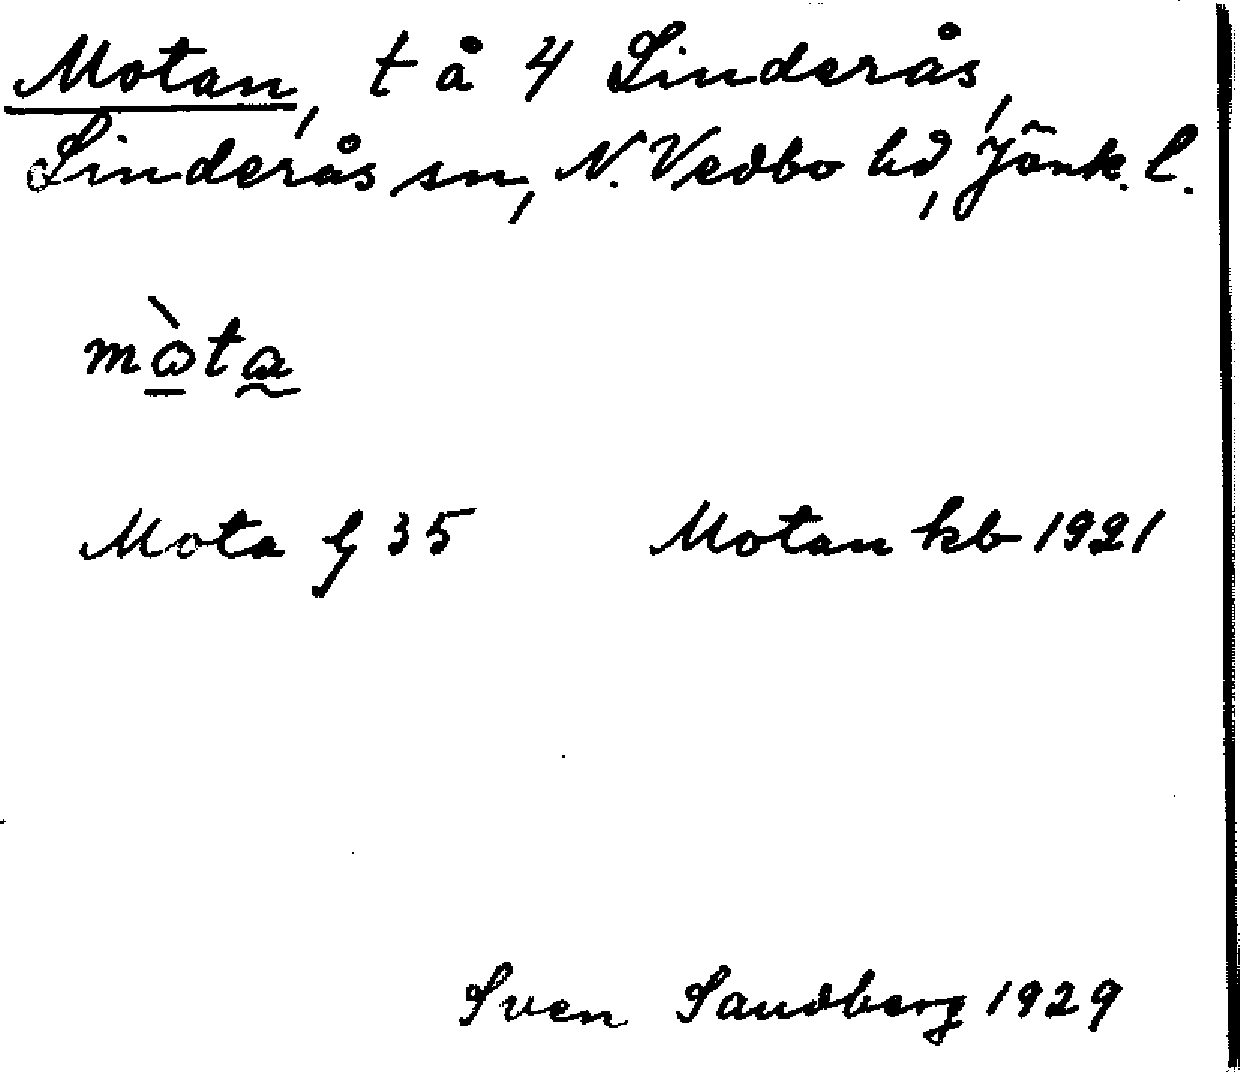 Motan, t å 4 Linderås,
Linderås sn, N. Vedbo hd, Jönk. l.
mòta
Mota G 35 Motan kb 1921
Sven Sandberg 1929